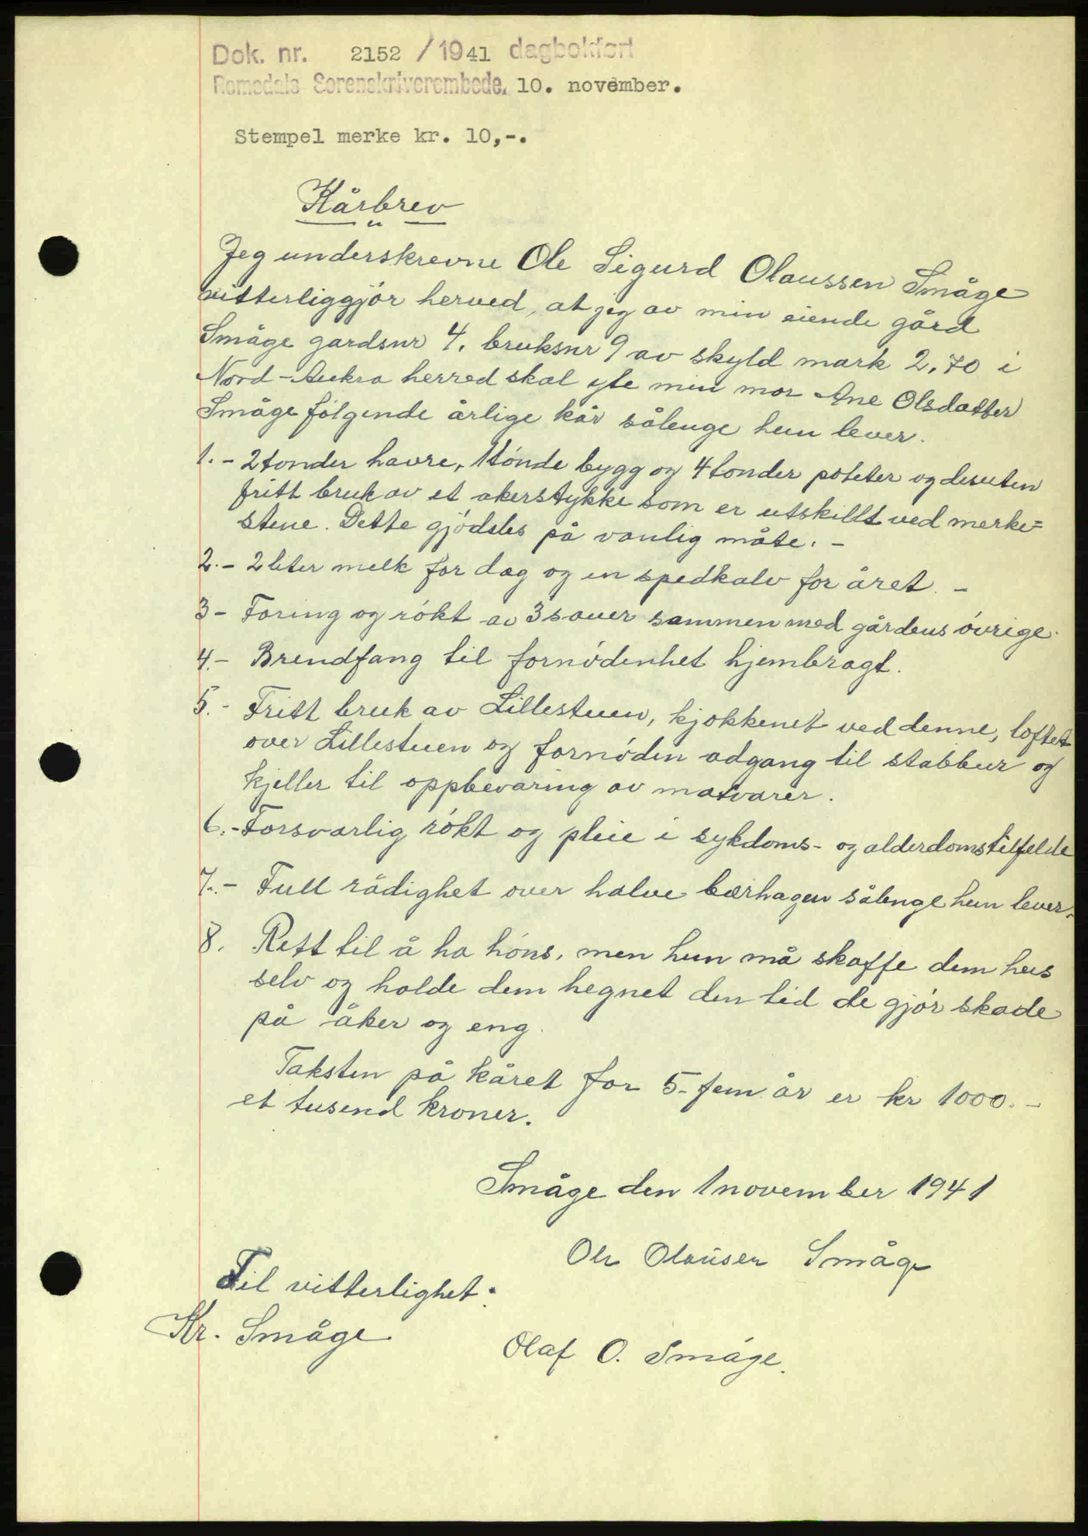 Dok. nr. 2152 / 1941 dagbokført
Romsdals Sorenskriverembede, 10. november.
Stempel merke kr. 10,-.
Kårbrev
Jeg underskrevne Ole Sigurd Olaussen Småge
vitterliggjør herved, at jeg av min eiende gård
Småge gardsnr 4. bruksnr 9 av skyld mark 2,70 i
Nord-Aukra herred skal yte min mor Ane Olsdatter
Småge følgende årlige kår sålenge hun lever.
1.- 2 tønder havre, 1 tønde bygg og 4 tønder poteter og desuten
fritt bruk av et akerstykke som er utskillt ved merke=
stene. Dette gjødsles på vanlig måte. -
2.- 2 liter melk for dag og en spedkalv for året. -
3- Foring og røkt av 3 sauer sammen med gårdens øvrige.
4.- Brendfang til fornødenhet hjembragt.
5.- Fritt bruk av Lillestuen, kjøkkenet ved denne, loftet
over Lillestuen og fornøden adgang til stabbur og
kjeller til oppbevaring av matvarer.
6.- Forsvarlig røkt og pleie i sykdoms- og alderdomstilfelde
7.- Full rådighet over halve bærhagen sålenge hun lever.
8. Rett til å ha høns, men hun må skaffe dem hus
selv og holde dem hegnet den tid de gjør skade
på åker og eng.
Taksten på kåret for 5- fem år er kr 1000.-
et tusend kroner.
Småge den 1 november 1941
Ole Olausen Småge
Til vitterlighet:
Kr. Småge
Olaf O. Småge.